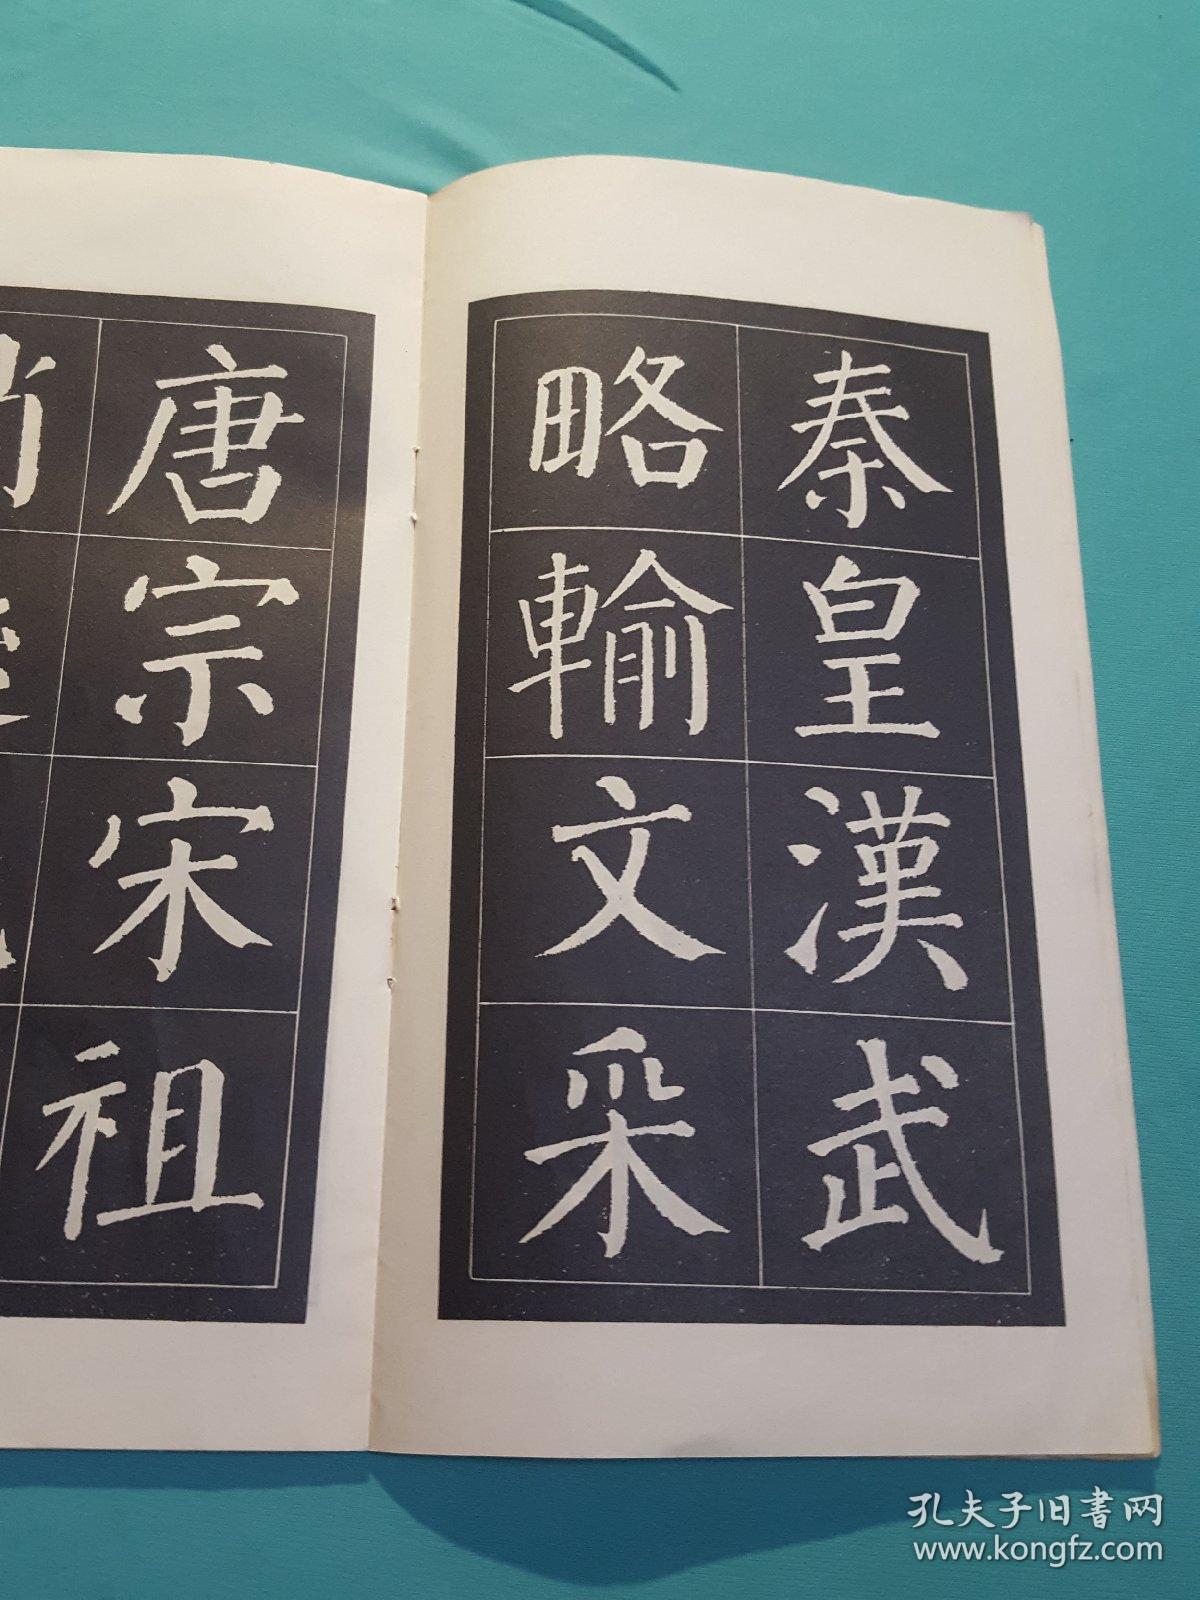 秦皇漢武
略輸文采
唐宗宋祖
孔夫子旧書网
www.kongfz.com